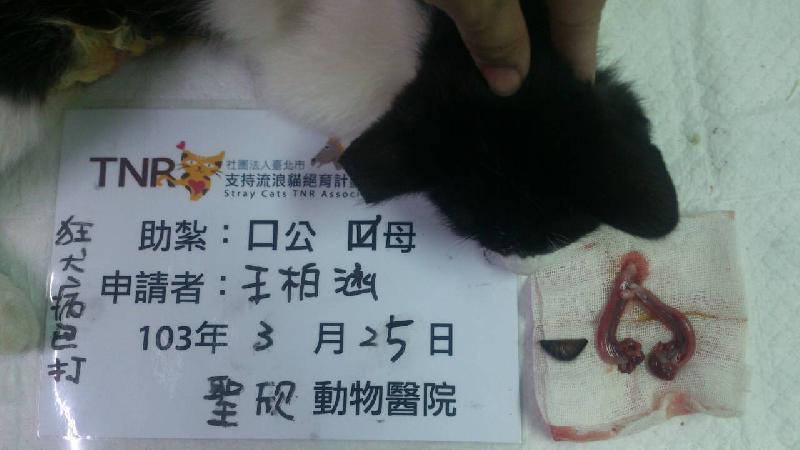 TNR
社團法人臺北市
支持流浪貓絕育計
Stray Cats TNR Assoc
助紮：口公 口母
申請者：王柏涵
103年 3 月 25 日
聖欣 動物醫院
狂犬病已打